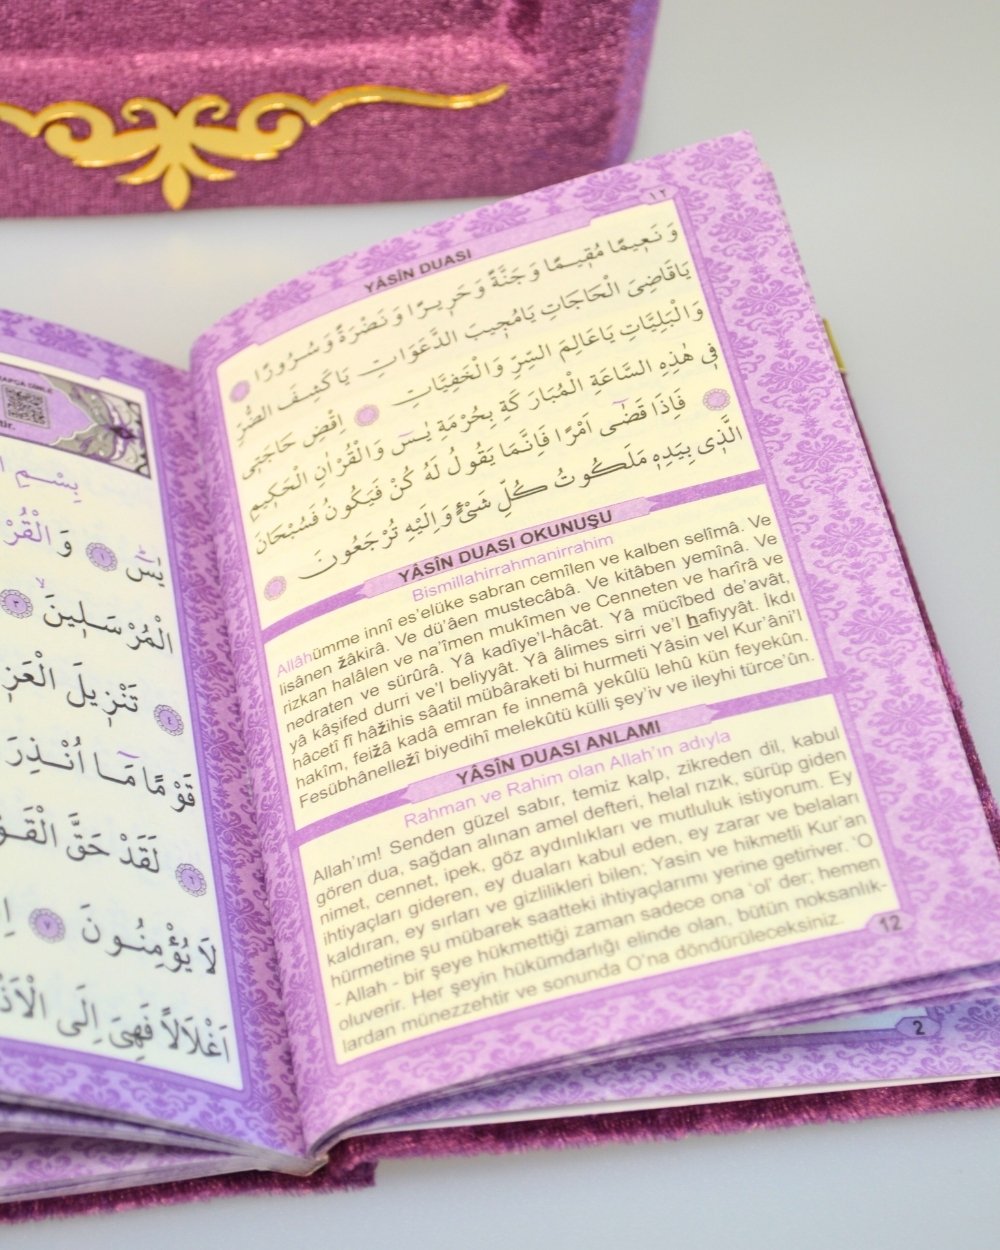 بِسْمِ
يٰسٓ ۝١ وَ الْقُرْ
الْمُرْسَلٖينَ ۝٣
۝٤ تَنْزٖيلَ الْعَزٖ
قَوْمًا مَٓا اُنْذِرَ
۝٦ لَقَدْ حَقَّ الْقَوْ
لَا يُؤْمِنُونَ ۝٧
اَغْلَالًا فَهِيَ اِلَى الْاَذْ
١٢
YÂSÎN DUASI
وَ نَعٖيمًا مُقٖيمًا وَ جَنَّةً وَ حَرٖيرًا وَ نَضْرَةً وَ سُرُورًا
يَاقَاضِىَ الْحَاجَاتِ يَامُجٖيبَ الدَّعَوَاتِ يَا كَاشِفَ الضُّرِّ
وَ الْبَلِيَّاتِ يَاعَالِمَ السِّرِّ وَ الْخَفِيَّاتِ اِقْضِ حَاجَتٖى
فٖى هٰذِهِ السَّاعَةِ الْمُبَارَكَةِ بِحُرْمَةِ يٰسٓ وَ الْقُرْاٰنِ الْحَكٖيمِ
فَاِذَا قَضٰٓى اَمْرًا فَاِنَّمَا يَقُولُ لَهُ كُنْ فَيَكُونُ فَسُبْحَانَ
الَّذٖى بِيَدِهٖ مَلَكُوتُ كُلِّ شَىْءٍ وَ اِلَيْهِ تُرْجَعُونَ
YÂSÎN DUASI OKUNUŞU
Bismillahirrahmanirrahim
Allâhümme innî es'elüke sabran cemîlen ve kalben selîmâ. Ve
lisânen žâkirâ. Ve dü'âen mustecâbâ. Ve kitâben yemînâ. Ve
rizkan halâlen ve na'îmen mukîmen ve Cenneten ve harîrâ ve
nedraten ve sürûrâ. Yâ kadîye'l-hâcât. Yâ mücîbed de'avât,
yâ kâşifed durri ve'l beliyyât. Yâ âlimes sirri ve'l hafiyyât. İkdı
hâcetî fî hâžihis sâatil mübâraketi bi hurmeti Yâsin vel Kur'âni'l
hakîm, feižâ kadâ emran fe innemâ yekûlü lehû kün feyekûn.
Fesübhânelležî biyedihî melekûtü külli şey'iv ve ileyhi türce'ûn.
YÂSÎN DUASI ANLAMI
Rahman ve Rahim olan Allah'ın adıyla
Allah'ım! Senden güzel sabır, temiz kalp, zikreden dil, kabul
gören dua, sağdan alınan amel defteri, helal rızık, sürüp giden
nimet, cennet, ipek, göz aydınlıkları ve mutluluk istiyorum. Ey
ihtiyaçları gideren, ey duaları kabul eden, ey zarar ve belaları
kaldıran, ey sırları ve gizlilikleri bilen; Yasin ve hikmetli Kur'an
hürmetine şu mübarek saatteki ihtiyaçlarımı yerine getiriver. 'O
- Allah - bir şeye hükmettiği zaman sadece ona 'ol' der; hemen
oluverir. Her şeyin hükümdarlığı elinde olan, bütün noksanlık-
lardan münezzehtir ve sonunda O'na döndürüleceksiniz.
12
2